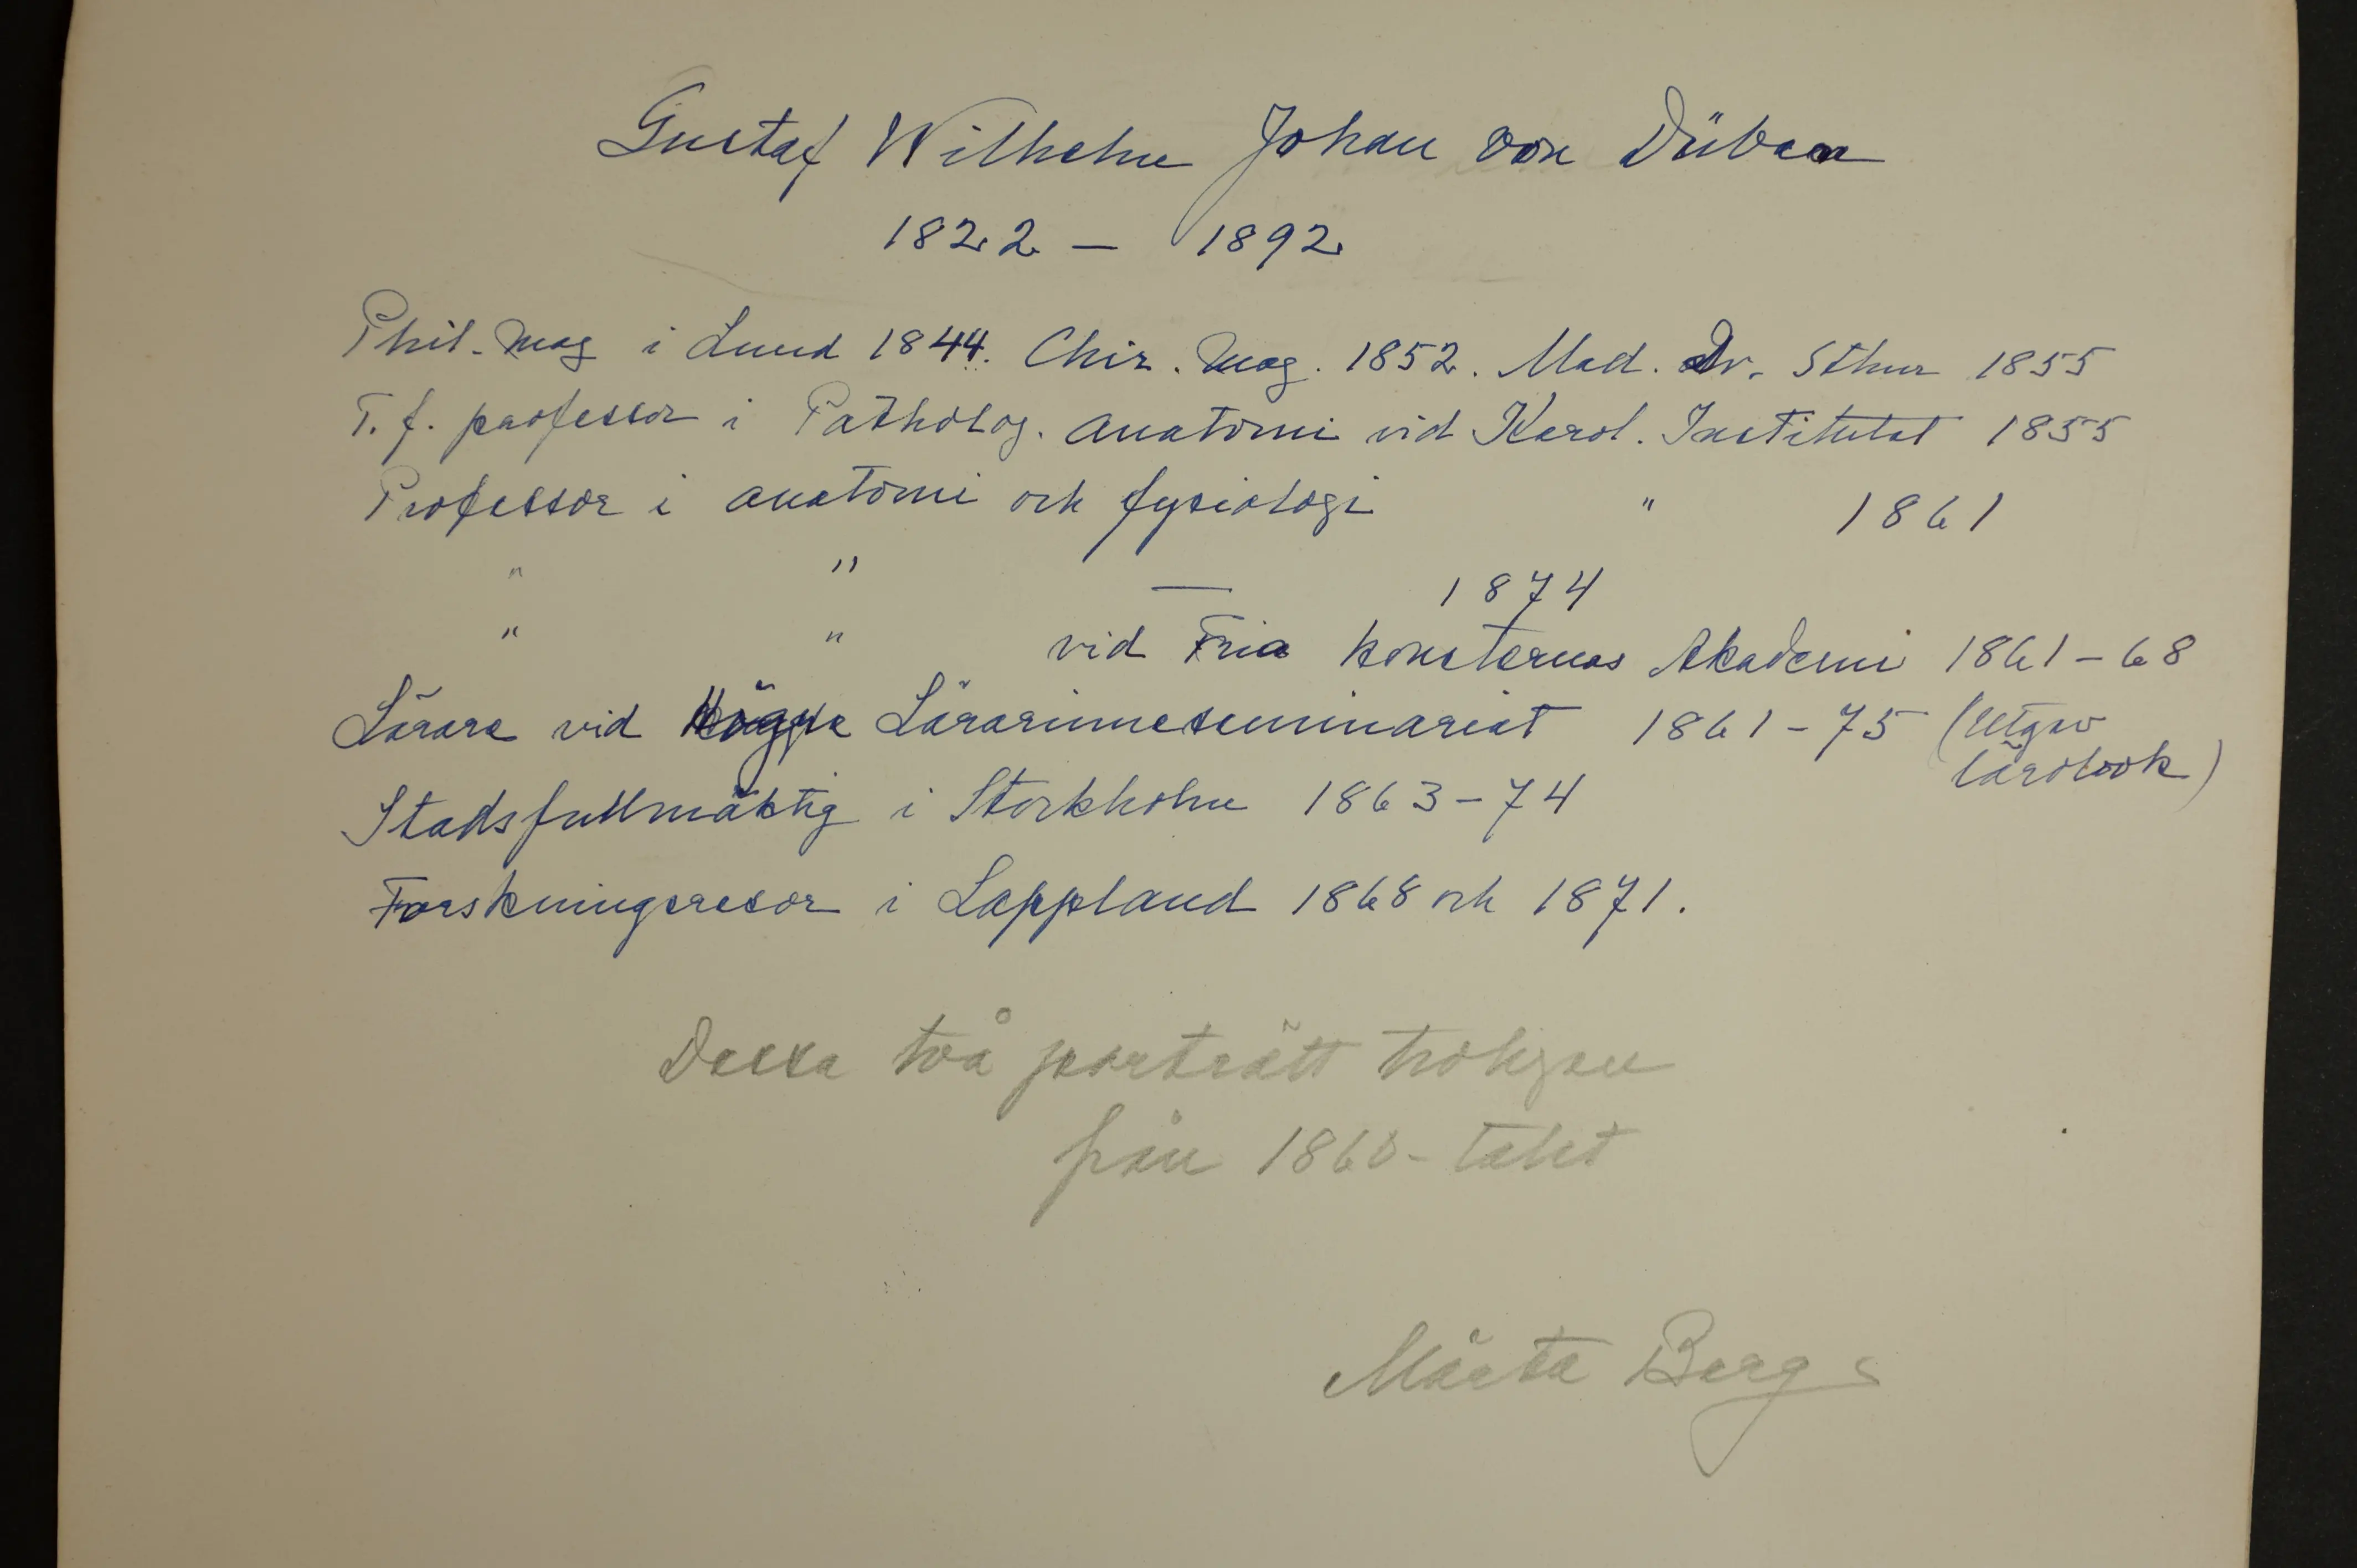 Gustaf Wilhelm Johan von Düben
1822 – 1892
Phil. Mag i Lund 1844. Chir. Mag. 1852. Med. Dr. Sthm 1855
T. f. professor i Patholog. anatomi vid Karol. Institutet 1855
Professor i anatomi och fysiologi " 1861
" " — 1874
" " vid Fria konsternas Akademi 1861–68
Lärare vid Högre Lärarinneseminariet 1861–75 (Utgav
lärobok)
Stadsfullmäktig i Stockholm 1863–74
Forskningsresor i Lappland 1868 och 1871.
Dessa två porträtt troligen
från 1860-talet
Märta Berg